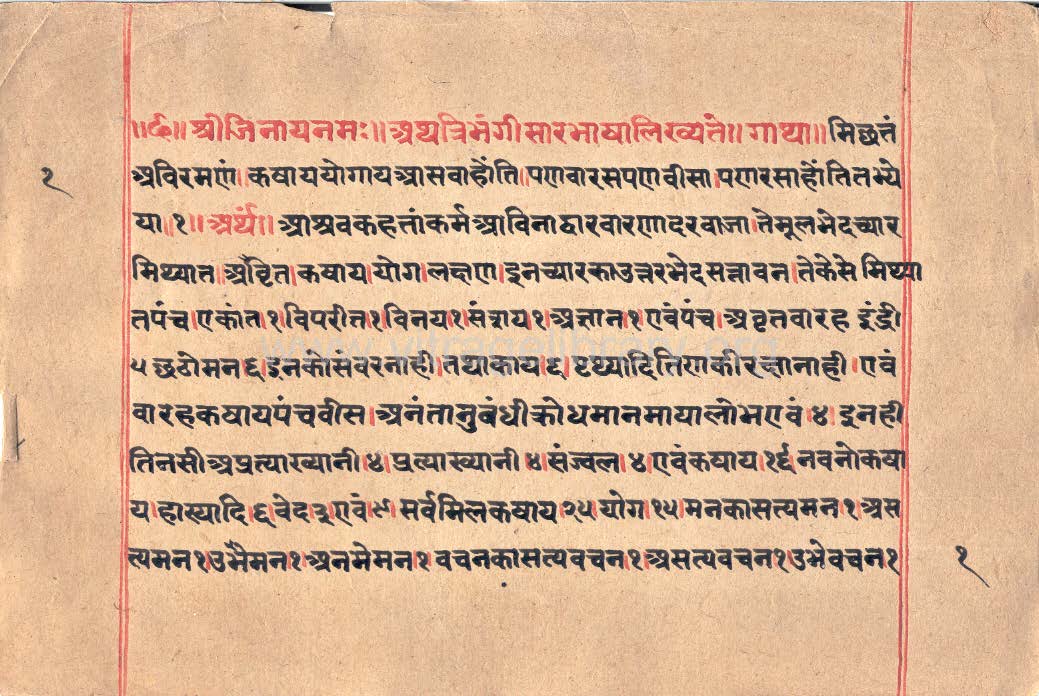 ॥र्द॥ श्रीजिनायनमः॥ अथत्रिभंगीसारभाषालिख्यते॥ गाथा॥ मिछत्तं
अविरमणं। कषाययोगायआसवाहोंति। पणवारसपणवीसा। पणरसाहोंतितभ्ये
या।१॥ अर्थ॥ आश्रवकहतांकर्मआविनाद्वारवारणादरवाजा। तेमूलभेदच्यार
मिथ्यात। अवृित। कषाय। योग। लक्षण। इनच्यारकाउत्तरभेदसत्तावन। तेकेसे मिथ्या
तपंच। एकांत।१। विपरीत१। विनय१। संशय१। अज्ञान१। एवंपंच। अवृतवारह इंद्री
५ छठोमन६। इनकोसंवरनाही। तथाकाय६। पृथ्यादितिणकीरक्षानाही। एवं
वारहकषायपंचवीस। अनंतानुबंधीक्रोधमानमायालोभएवं।४। इनही
तिनसीअप्रत्याख्यानी।४। प्रत्याख्यानी।४। संज्वल।४। एवंकषाय।१६। नवनोकषा
य। हास्यादि।६। वेद३। एवं।९। सर्वमिलकषाय।२५। योग।१५। मनकासत्यमन।१। अस
त्यमन।१। उभैमन।१। अनमेमन।१। वचनकासत्यवचन।१। असत्यवचन।१। उभेवचन।१
१
१
www.vitragelibrary.org